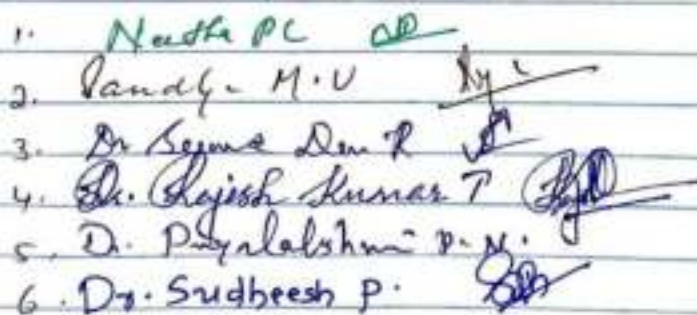 1. Neetha PC
2. Sandhya M.V
3. Dr Seema Devi R
4. Dr. Rajesh Kumar T
5. Dr. Priyalakshmi P. M.
6. Dr. Sudheesh P.